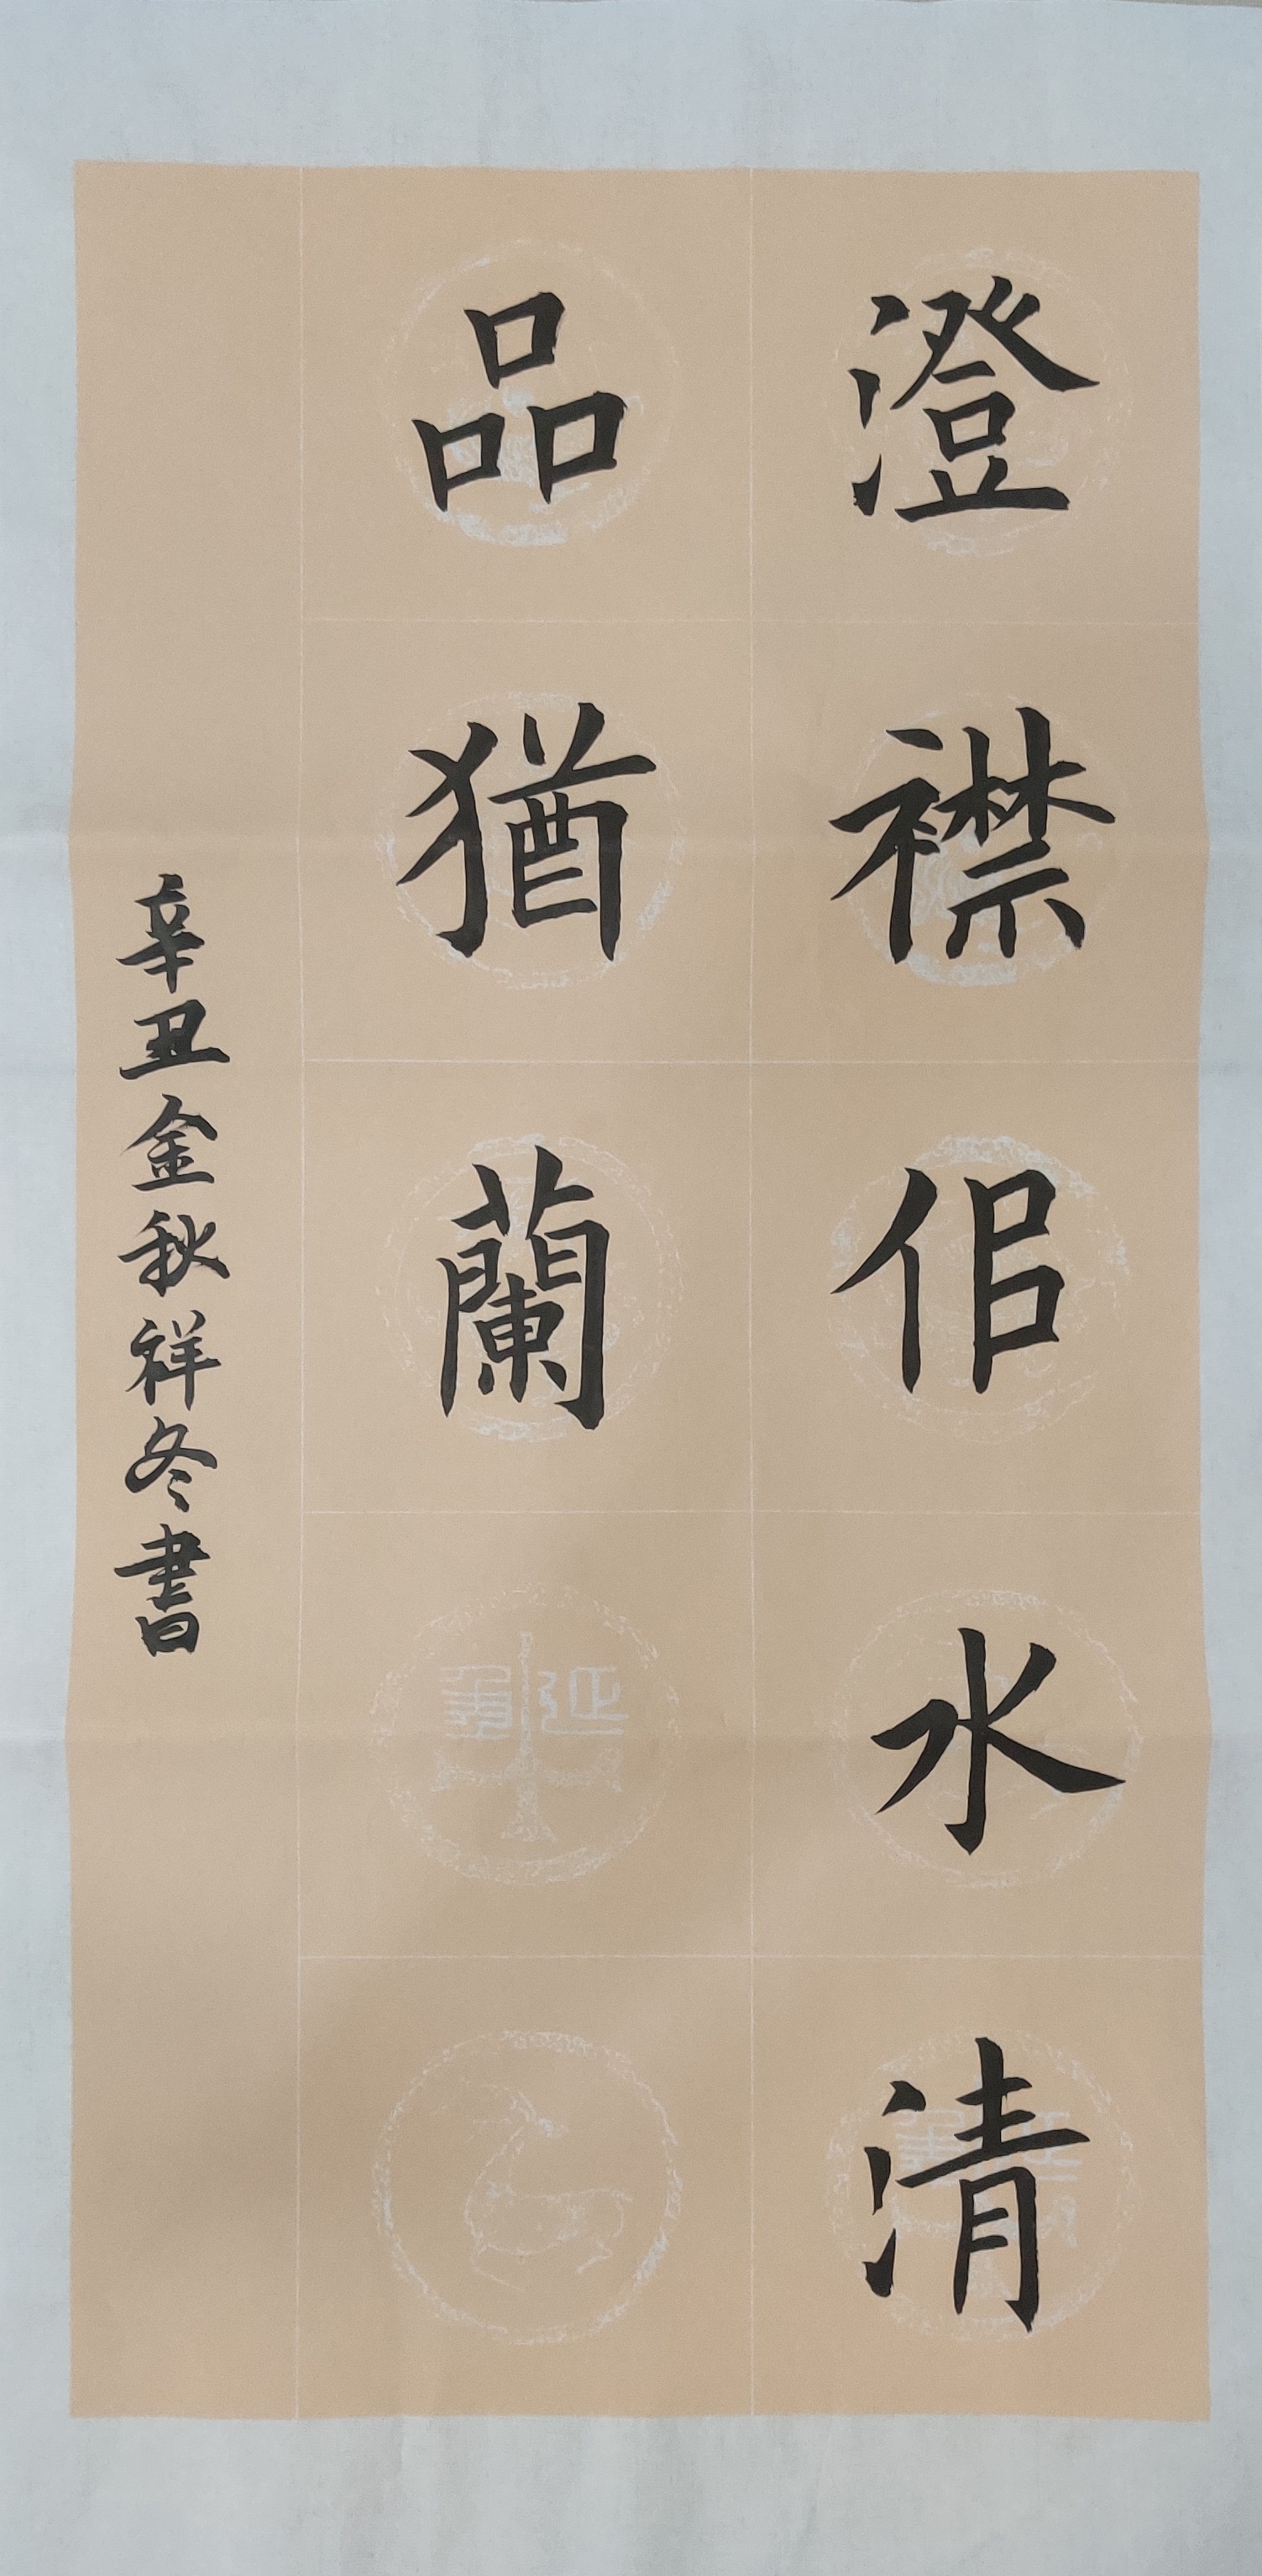 澄襟佀水清
品猶蘭
辛丑金秋祥冬書